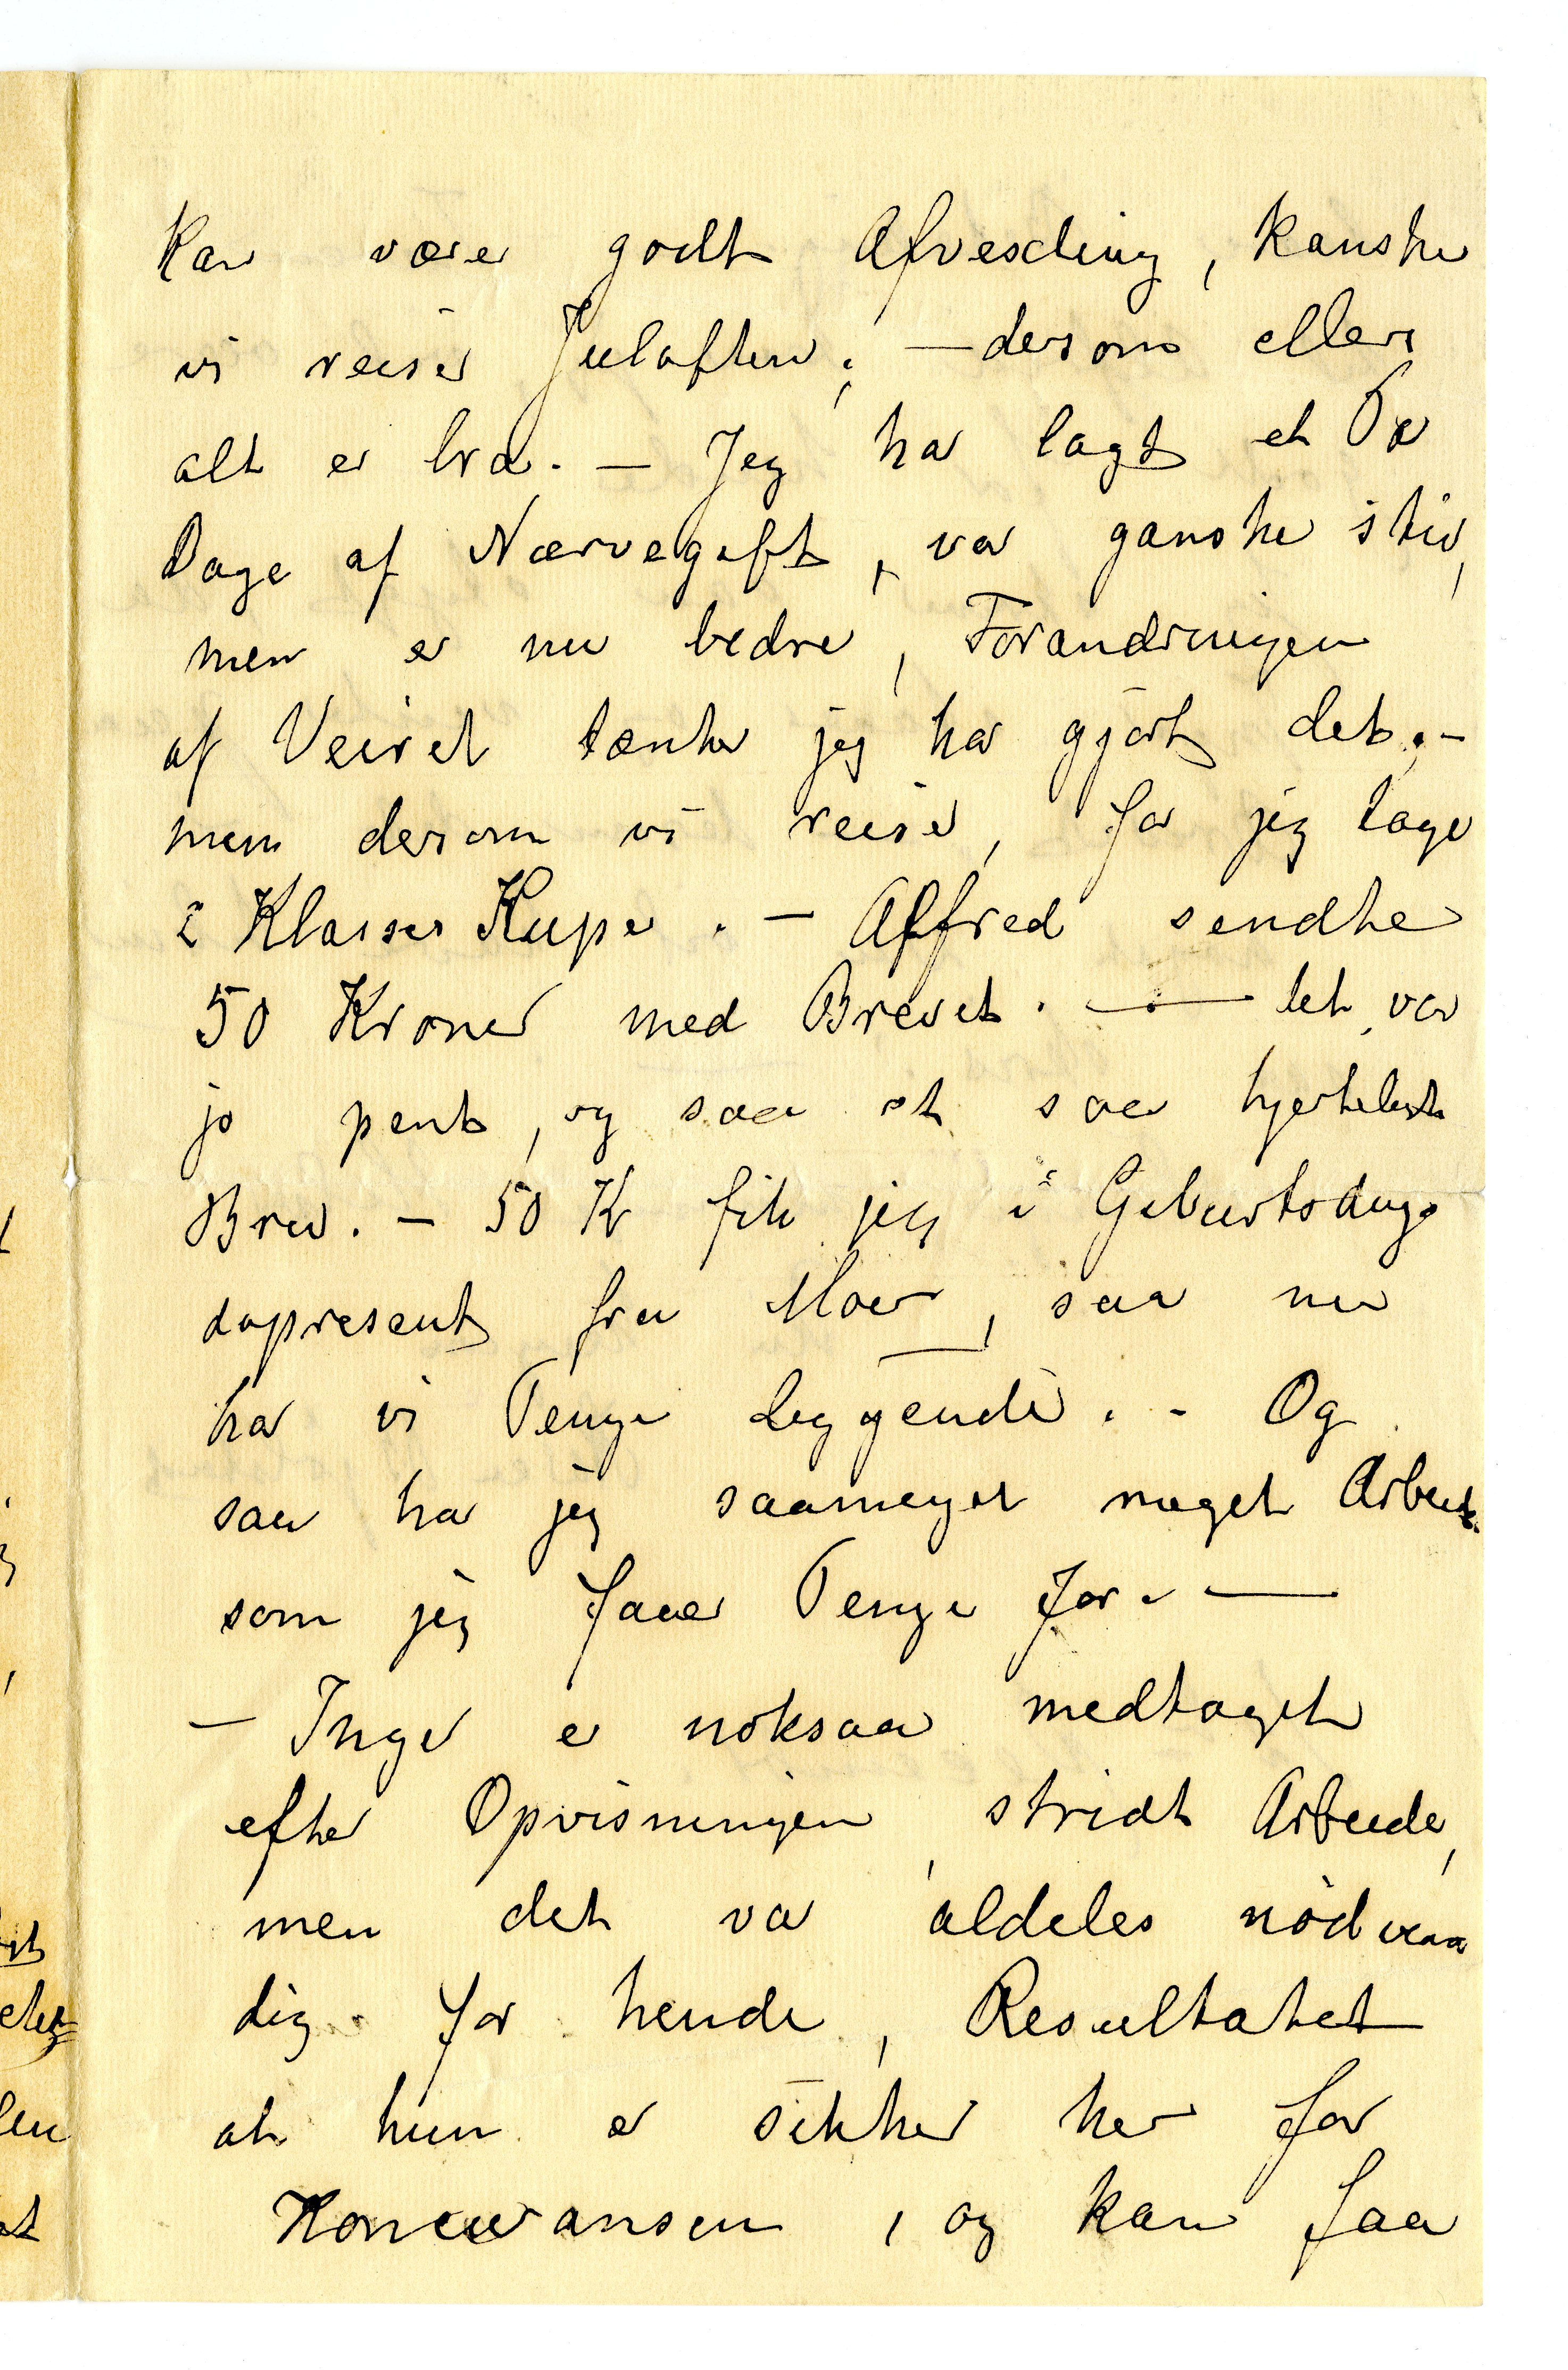 Kan være godt Afvexling, kanske
vi reiser Juleaften; — dersom ellers
alt er bra. — Jeg har lagt et Par
Dage af Nærvegift, var ganske stiv,
men er nu bedre, Forandringen
af Veiret tænker jeg har gjort det; -
men dersom vi reiser, får jeg tage
2 Klasses Kupe. — Alfred sendte
50 Kroner med Brevet. — det var
jo pent, og saa et saa hjerteligt
Brev. — 50 Kr fik jeg i Geburtsdags
dapresent fra Moer, saa nu
har vi Penge liggende. - Og
saa har jeg saameget meget Arbeide
som jeg faaer Penge for. —
— Inger er noksaa medtaget
efter Opvisningen, stridt Arbeide,
men det var aldeles nødvæn
dig for hende, Resultatet
at hun er sikker her for
og kan faa